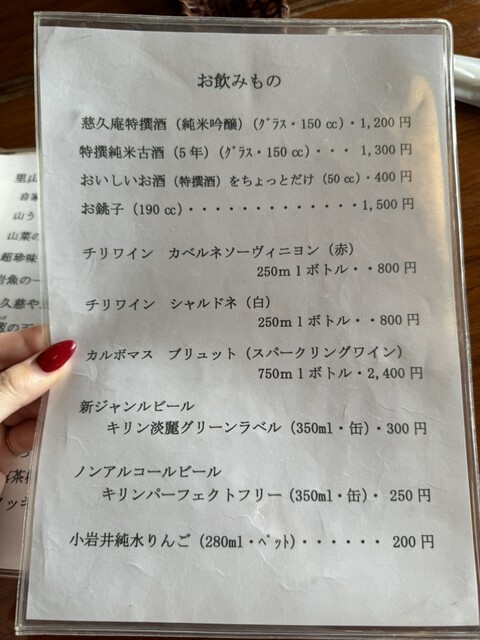 お飲みもの
慈久庵特撰酒（純米吟醸）（ｸﾞﾗｽ・150 ㏄）・1,200 円
特撰純米古酒（5 年）（ｸﾞﾗｽ・150 ㏄）・・・ 1,300 円
おいしいお酒（特撰酒）をちょっとだけ（50 ㏄）・400 円
お銚子（190 ㏄）・・・・・・・・・・・・・1,500 円
チリワイン　カベルネソーヴィニヨン（赤）
250ｍｌボトル・・800 円
チリワイン　シャルドネ（白）
250ｍｌボトル・・800 円
カルボマス　ブリュット（スパークリングワイン）
750ｍｌボトル・2,400 円
新ジャンルビール
キリン淡麗グリーンラベル（350ml・缶）・300 円
ノンアルコールビール
キリンパーフェクトフリー（350ml・缶）・ 250 円
小岩井純水りんご（280ml・ﾍﾟｯﾄ）・・・・・・ 200 円
里山
自家
山う
山菜の
超珍味
岩魚の一
久慈や